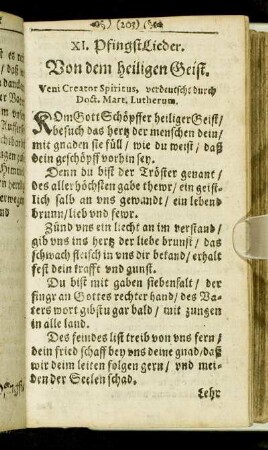 (203)
XI. PfingstLieder.
Von dem heiligen Geist.
Veni Creator Spiritus, verdeutscht durch
Doct. Mart. Lutherum.
KOm Gott Schöpffer heiliger Geist/
besuch das hertz der menschen dein/
mit gnaden sie füll/ wie du weist/ daß
dein geschöpff vorhin sey.
Denn du bist der Tröster genant/
des aller höchsten gabe thewr/ ein geist-
lich salb an vns gewandt/ ein lebend
brunn/ lieb vnd fewr.
Zünd vns ein liecht an im verstand/
gib vns ins hertz der liebe brunst/ das
schwach fleisch in vns dir bekand/ erhalt
fest dein krafft vnd gunst.
Du bist mit gaben siebenfalt/ der
fingr an Gottes rechter hand/ des Va-
ters wort gibstu gar bald/ mit zungen
in alle land.
Des feindes list treib von vns fern/
dein fried schaff bey vns deine gnad/ daß
wir deim leiten folgen gern/ vnd mei-
den der Seelen schad.
Lehr